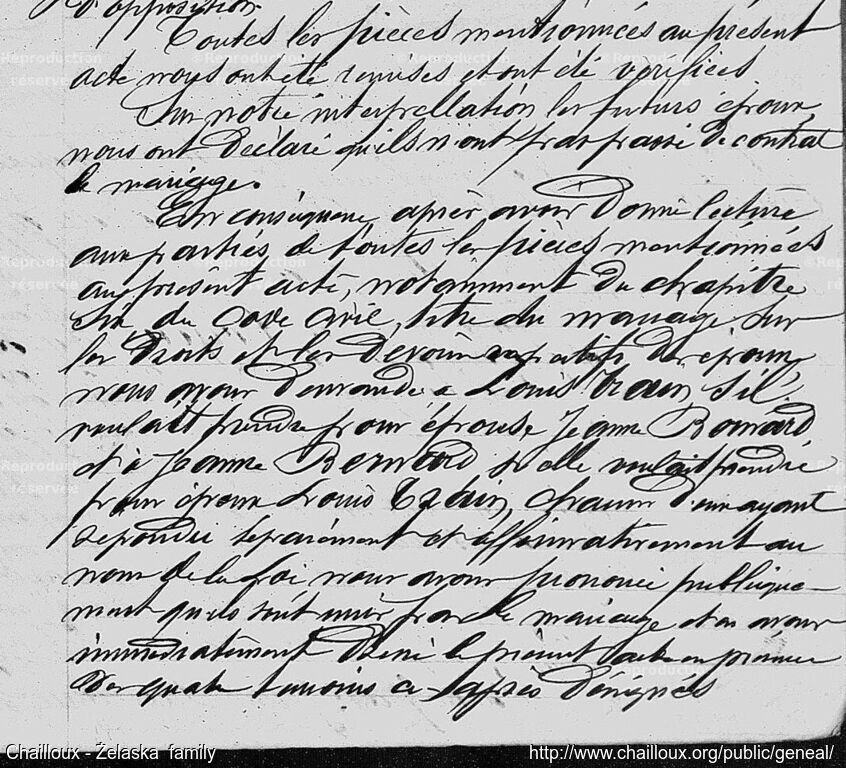 d'opposition.
Toutes les pièces mentionnées au présent
acte nous ont été remises et ont été vérifiées
Sur notre interpellation les futurs époux
nous ont déclaré qu'ils n'ont pas passé de contrat
de mariage.
En conséquence, après avoir donné lecture
aux parties de toutes les pièces mentionnées
au présent acte, notamment du chapitre
six du Code civil, titre du mariage sur
les droits et les devoirs respectifs des époux,
nous avons demandé à Louis s'il
voulait prendre pour épouse Jeanne Bernard
et à Jeanne Bernard si elle voulait prendre
pour époux Louis chacun d'eux ayant
répondu séparément et affirmativement au
nom de la Loi nous avons prononcé publique-
ment qu'ils sont unis par le mariage et en avons
immédiatement dressé le présent acte en présence
des quatre témoins ci-après désignés
Chailloux - Żelaska family
http://www.chailloux.org/public/geneal/